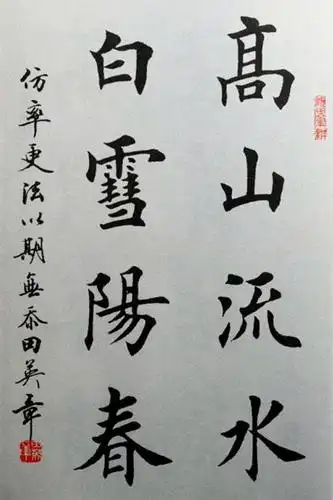 高山流水
白雪陽春
仿率更法以期無忝田英章